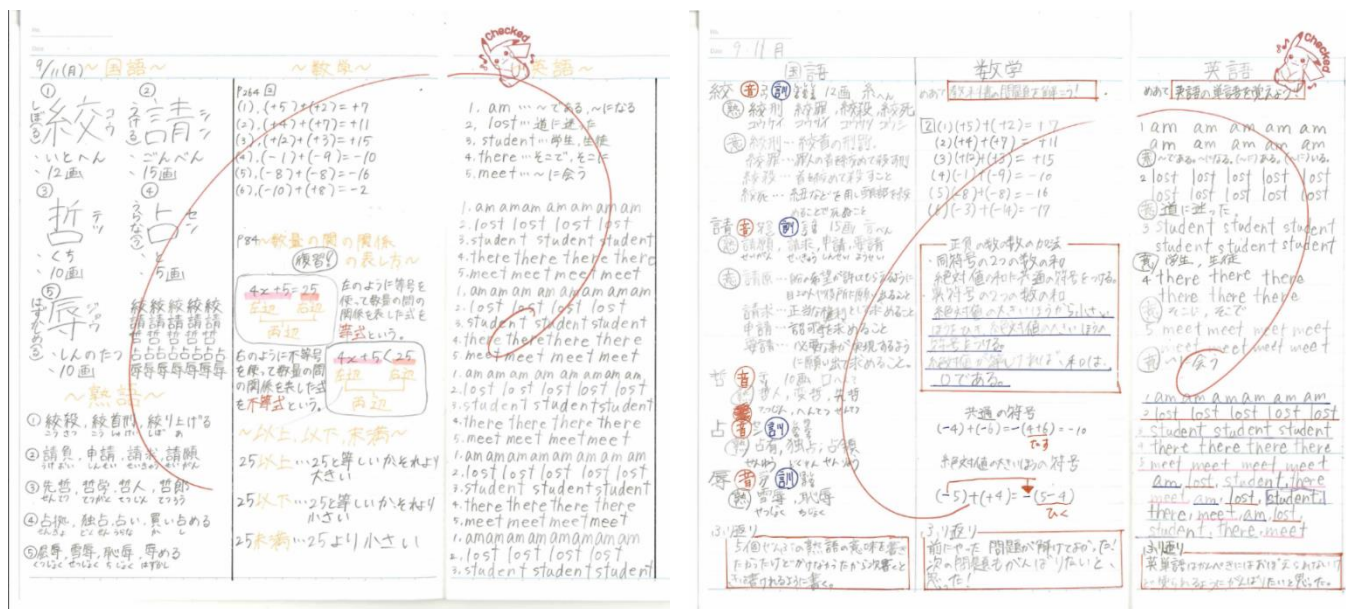 9/11(月)～国語～
①
しぼる 絞 コウ
・いとへん
・12画
②
うける 請 シン
・ごんべん
・15画
③
哲 テツ
・くち
・10画
④
うらなう 占 セン
・と
・5画
⑤
はずかしめる 辱 ジョク
・しんのたつ
・10画
絞絞絞絞絞
請請請請請
哲哲哲哲哲
占占占占占占占
辱辱辱辱辱辱
～熟語～
①絞殺,絞首刑,絞り上げる
②請負,申請,請求,請願
③先哲,哲学,哲人,哲郎
④占拠,独占,占い,買い占める
⑤屈辱,雪辱,恥辱,辱める
～数学～
P264 2
(1),(+5)+(+2)=+7
(2),(+4)+(+7)=+11
(3),(+12)+(+3)=+15
(4),(-1)+(-9)=-10
(5),(-8)+(-8)=-16
(6),(-10)+(+8)=-2
P84～数量の間の関係
の表し方～
復習!
4x+5=25
左辺 右辺
両辺
左のように等号を
使って数量の間の
関係を表した式を
等式という。
右のように不等号
を使って数量の間
の関係を表した式
を不等式という。
4x+5<25
左辺 右辺
両辺
～以上,以下,未満～
25以上…25と等しいかそれより
大きい
25以下…25と等しいかそれより
小さい
25未満…25より小さい
Checked
英語～
1. am…～である,～になる
2. lost…道に迷った
3. student…学生,生徒
4. there…そこで,そこに
5. meet…～に会う
1. am am am am am am am
2. lost lost lost lost lost
3. student student student
4. there there there there
5. meet meet meet meet
1. am am am am am am am
2. lost lost lost lost lost
3. student student student
4. there there there there
5. meet meet meet meet
1. am am am am am am am
2. lost lost lost lost lost
3. student student student
4. there there there there
5. meet meet meet meet
1. am am am am am am am
2. lost lost lost lost lost
3. student student student
4. there there there there
5. meet meet meet meet
1. am am am am am am am
2. lost lost lost lost lost
3. student student student
9.11月
国語
絞 音 訓 12画 糸へん
熟 絞刑 絞罪 絞殺 絞死
絞殺…首を絞めて殺すこと
請 音 訓 15画 言へん
熟 請願,請求,申請,要請
せいがん せいきゅう しんせい ようせい
申請…認可を求めること
哲 音 10画 口へん
占 音 訓
占有,独占,占領
せんゆう どくせん せんりょう
辱 音 訓
熟 雪辱,恥辱
せつじょく ちじょく
ふり返り
数学
めあて
2(1)(+5)+(+2)=+7
(2)(+4)+(+7)=+11
(3)(+12)+(+3)=+15
(4)(-1)+(-9)=-10
(5)(-8)+(-8)=-16
(6)(-3)+(-14)=-17
正負の数の数の加法
・同符号の2つの数の和
絶対値の和に共通の符号をつける。
・異符号の2つの数の和
絶対値の大きいほうから小さい
ほうをひき,絶対値の大きいほうの
符号をつける。
絶対値が等しければ,和は,
0である。
共通の符号
(-4)+(-6)=-(4+6)=-10
たす
絶対値の大きいほうの符号
(-5)+(+4)=-(5-4)
ひく
ふり返り
前にやった問題が解けてよかった!
次の問題もがんばりたいと、
思った!
Checked
英語
めあて 英語の単語を覚えよう
1 am am am am am
am am am am am
意 ～である。～になる。(～に)ある。(～に)いる。
2 lost lost lost lost lost
lost lost lost lost lost
意 道に迷った
3 student student student
student student student
意 学生,生徒
4 there there there
there there there
意 そこに,そこで
5 meet meet meet meet
meet meet meet meet
意 会う
1 am am am am am am
2 lost lost lost lost lost
3 student student student
4 there there there there
5 meet meet meet meet
am, lost, student, there
meet, am, lost, student,
there, meet, am, lost,
student, there, meet
ふり返り